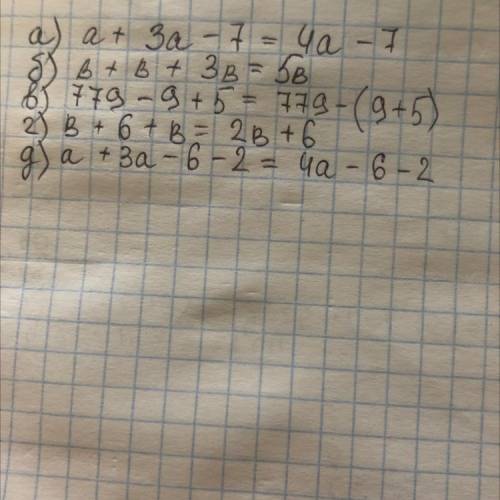 а) а + 3а - 7 = 4а - 7
б) в + в + 3в = 5в
в) 779 - 9 + 5 = 779 - (9+5)
г) в + 6 + в = 2в + 6
д) а + 3а - 6 - 2 = 4а - 6 - 2